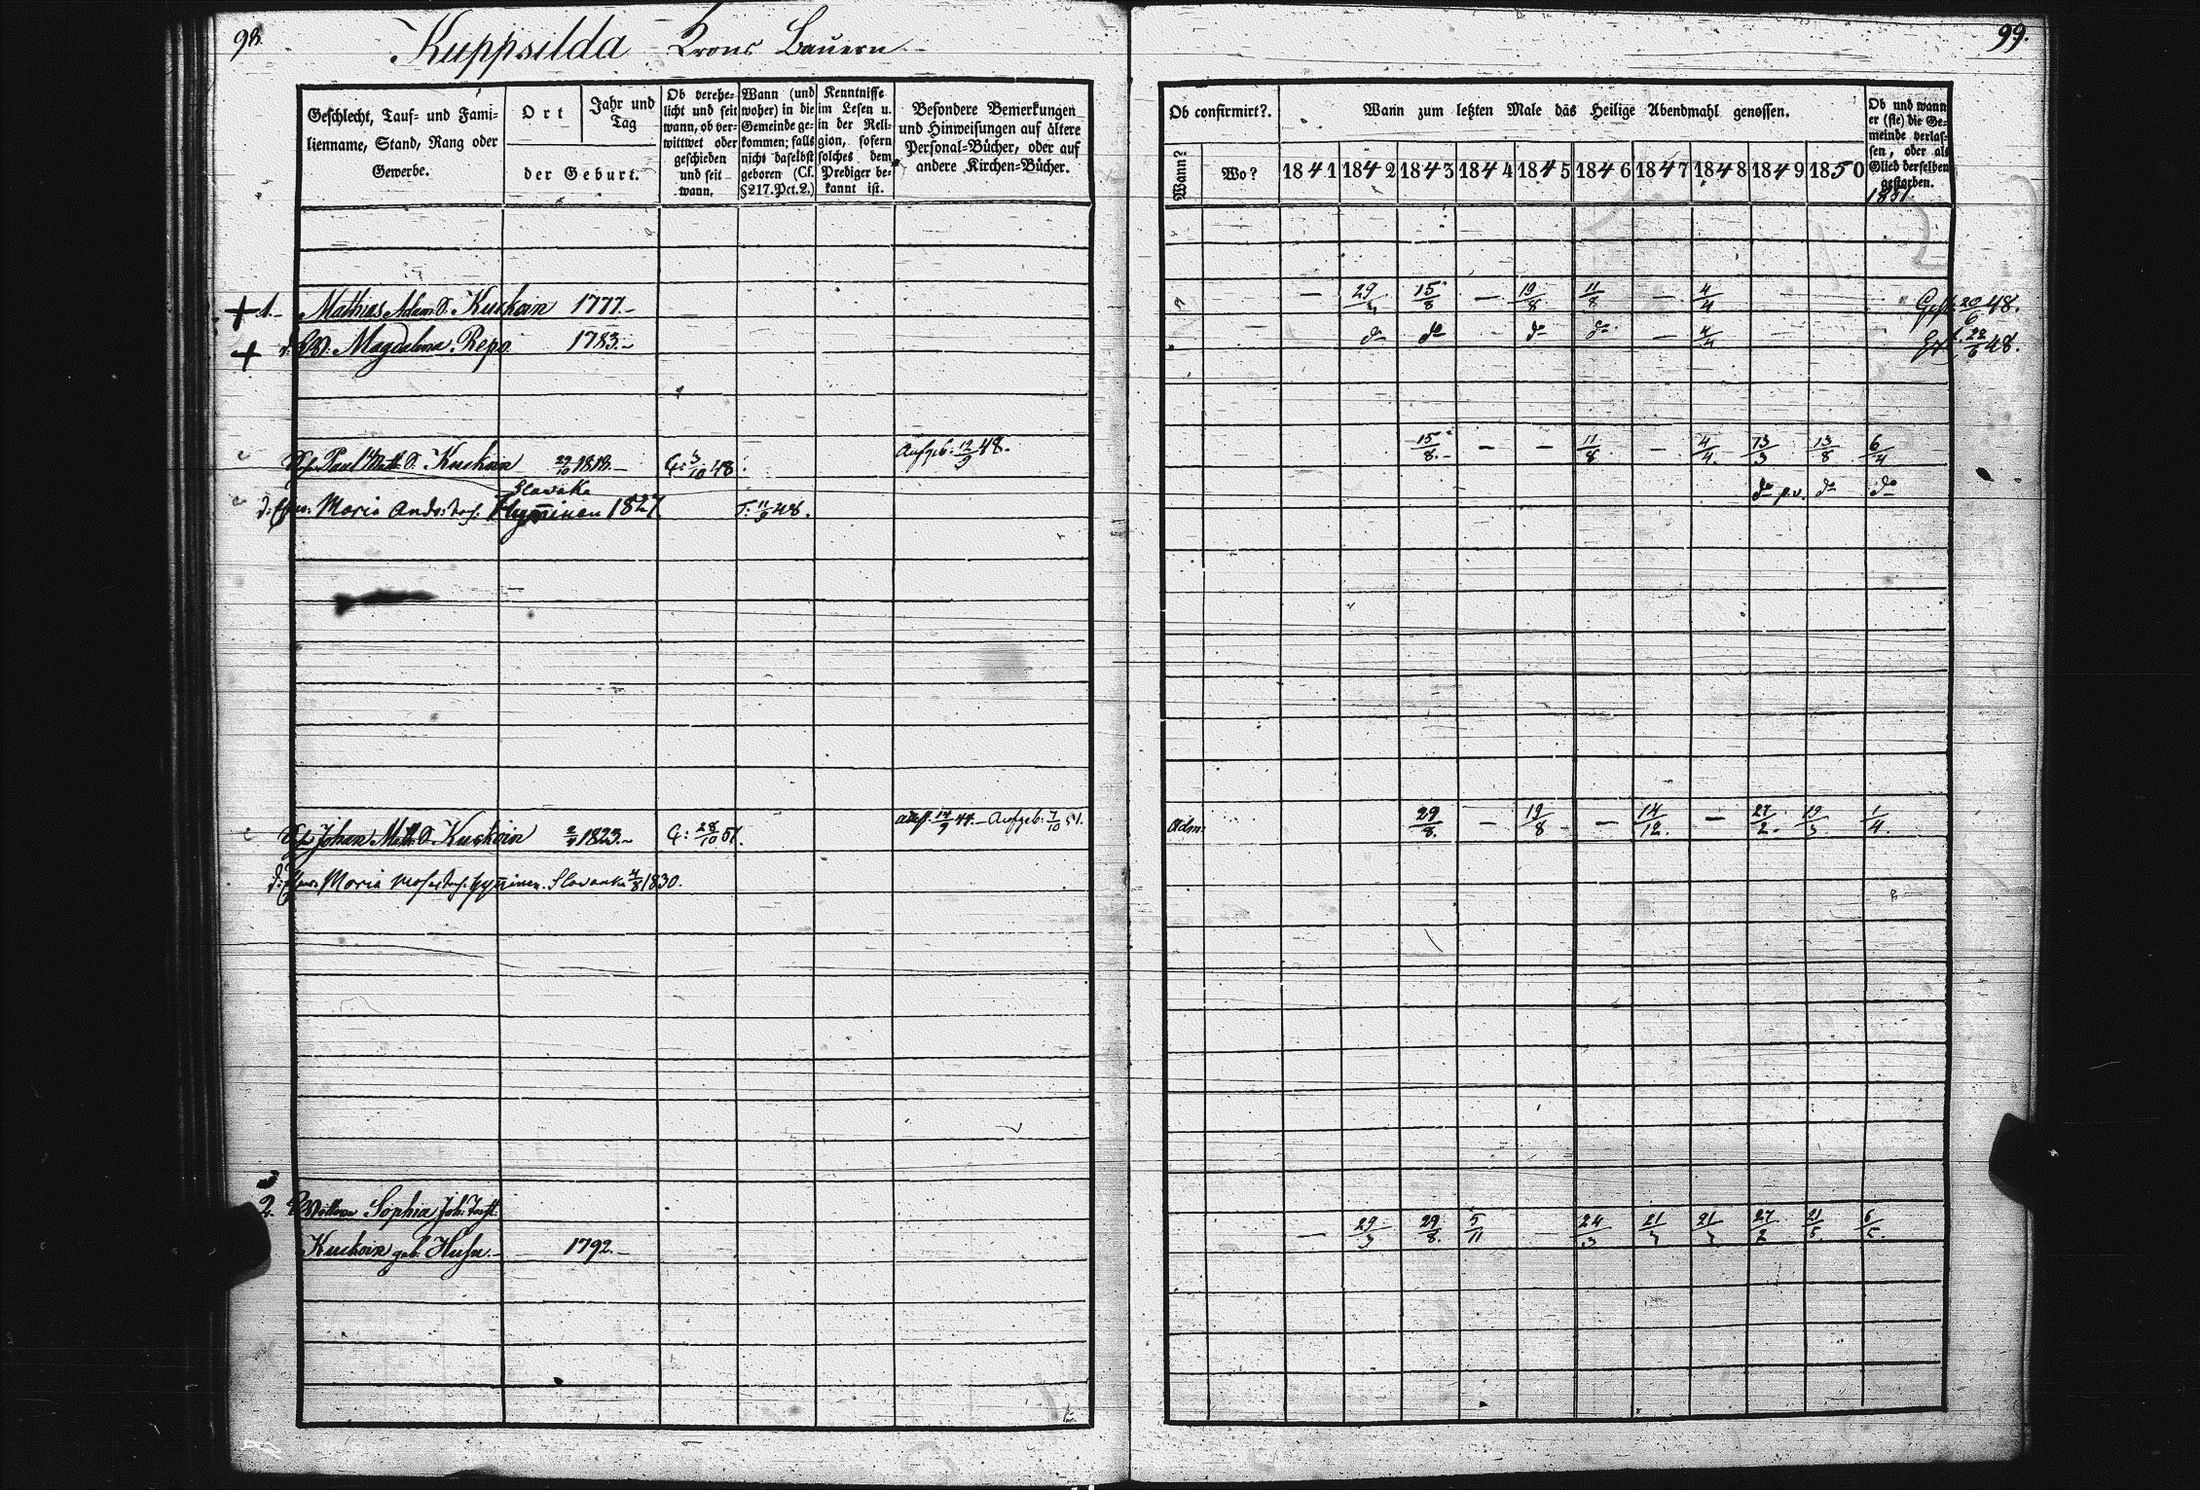 98.
Kuppsilda Krons Bauern
Geschlecht, Tauf- und Fami-
lienname, Stand, Rang oder
Gewerbe.
Ort
Jahr und
Tag
der Geburt.
Ob verehe-
licht und seit
wann, ob ver-
wittwet oder
geschieden
und seit
wann.
Wann (und
woher) in die
Gemeinde ge-
kommen; falls
nicht daselbst
geboren (Cf.
§217. Pct. 2.)
Kenntnisse
im Lesen u.
in der Reli-
gion, sofern
solches dem
Prediger be-
kannt ist.
Besondere Bemerkungen
und Hinweisungen auf ältere
Personal-Bücher, oder auf
andere Kirchen-Bücher.
1. Mathias Adam S. Kuckoin 1777.
d. W. Magdalena Repo 1783.
Paul Math. S. Kuckoin 29/10 1818. 3/10 48. Aufgeb. 12/9 48.
Slawäka
Maria Hyvinen 1827. 11/9 48.
Johan Math. S. Kuckoin 1823. 28/10 51. 14/9 44. Aufgeb. 7/10 51.
Maria Slavanka 4/8 1830.
2. Wittwe Sophia Joh.
Kuckoin geb. Huhn 1792.
99.
Ob confirmirt?.
Wann?
Wo?
Wann zum letzten Male das Heilige Abendmahl genossen.
1841 1842 1843 1844 1845 1846 1847 1848 1849 1850
Ob und wann
er (sie) die Ge-
meinde verlas-
sen, oder als
Glied derselben
gestorben.
1851.
– 29/3 15/8 – 19/8 11/8 – 4/4 Gest. 20/6 48.
do do do do – 4/4 Gest. 22/6 48.
15/8. – – 11/8 – 4/4 13/3 13/8 6/4
do p.v. do do
Adm. 29/8. – 19/8 – 14/12. – 27/2 19/3 1/4.
– 29/3 29/8. 5/11 – 24/3 21/3 21/3 27/2 21/5. 6/5.